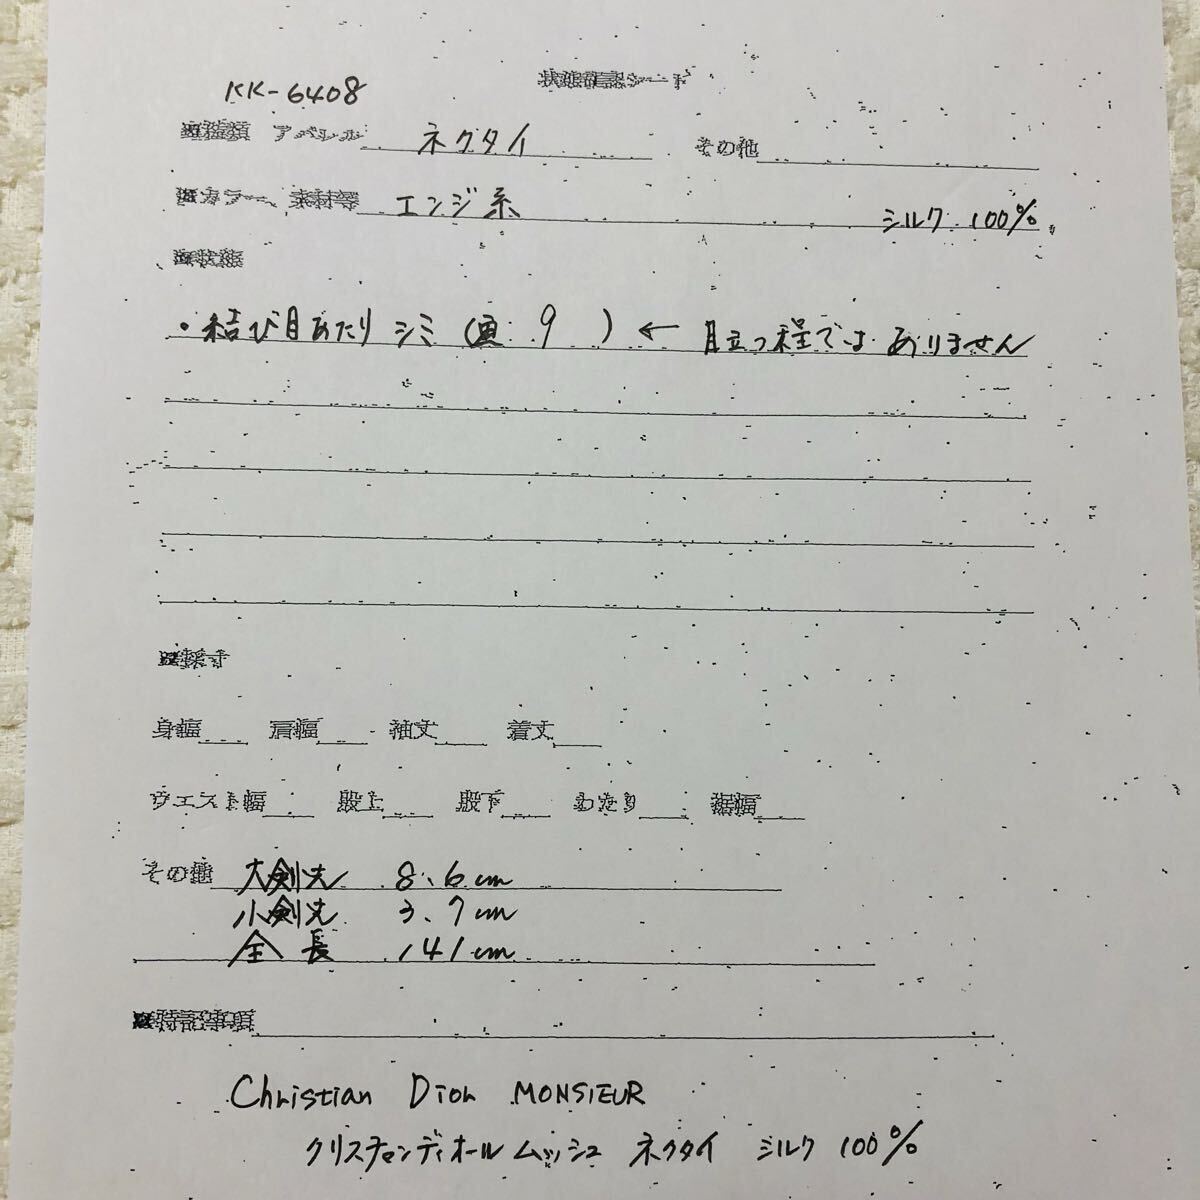 状態確認シート
KK-6408
※種類 アパレル ネクタイ その他
※カラー、素材等 エンジ系 シルク 100%
※状態
・結び目あたり シミ (画 9 ) ← 目立つ程では ありません
※採寸
身幅 肩幅 袖丈 着丈
ウエスト幅 股上 股下 わたり 裾幅
その他 大剣先 8.6cm
小剣先 3.7cm
全長 141cm
※特記事項
Christian Dior MONSIEUR
クリスチャンディオール ムッシュ ネクタイ シルク 100%